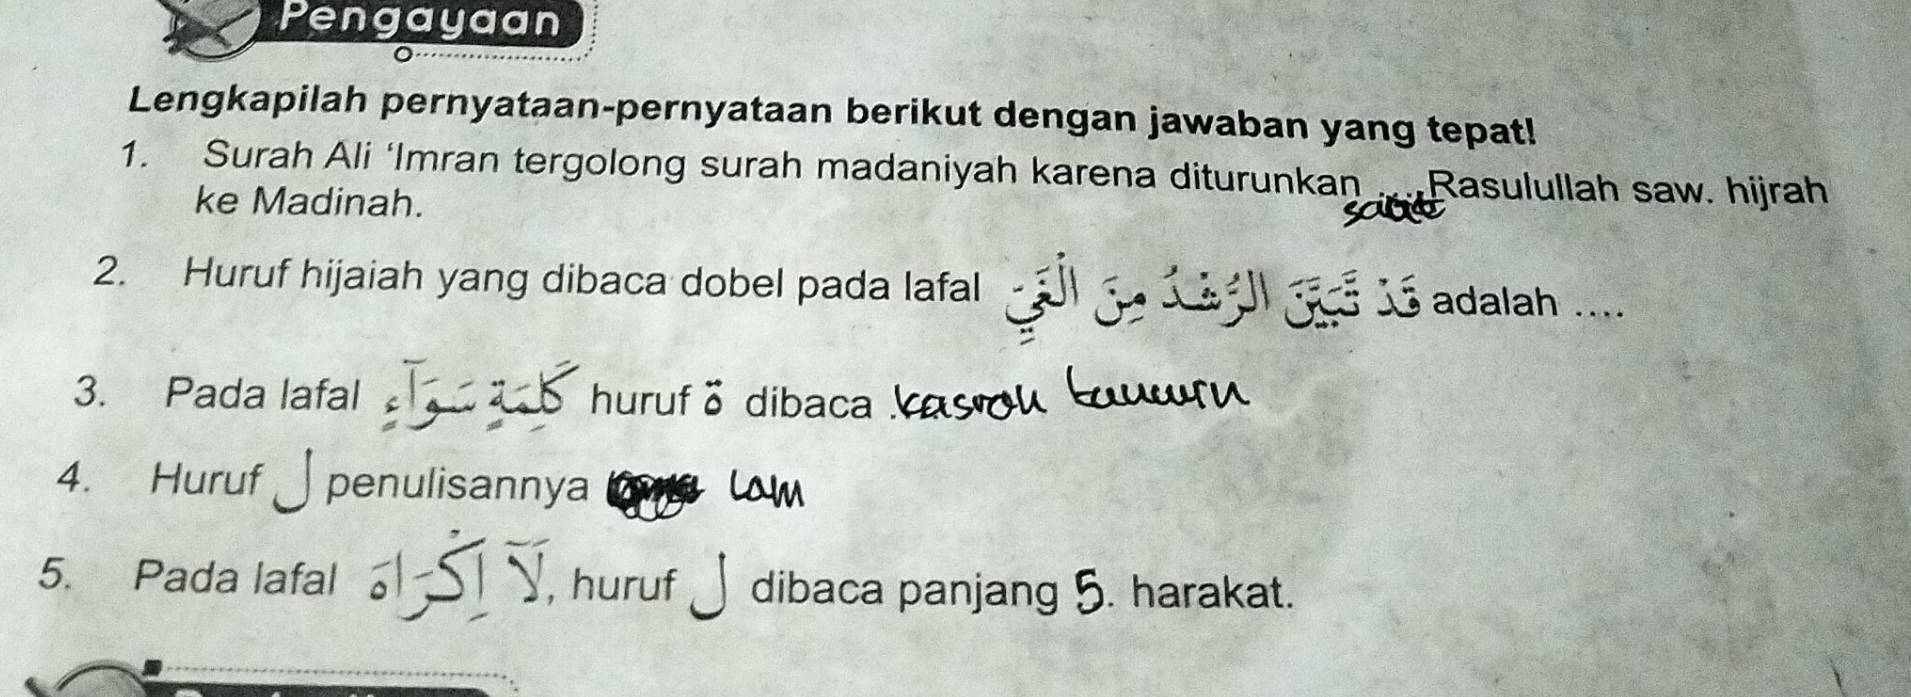 Pengayaan
Lengkapilah pernyataan-pernyataan berikut dengan jawaban yang tepat!
1. Surah Ali ‘Imran tergolong surah madaniyah karena diturunkan .... Rasulullah saw. hijrah
ke Madinah.
2. Huruf hijaiah yang dibaca dobel pada lafal قَدْ تَّبَيَّنَ الرُّشْدُ مِنَ الْغَيِّ adalah ....
3. Pada lafal كَلِمَةٍ سَوَآءٍ huruf ة dibaca kasroh
4. Huruf ل penulisannya Lam
5. Pada lafal لَآ اِكْرَاهَ, huruf ل dibaca panjang 5. harakat.